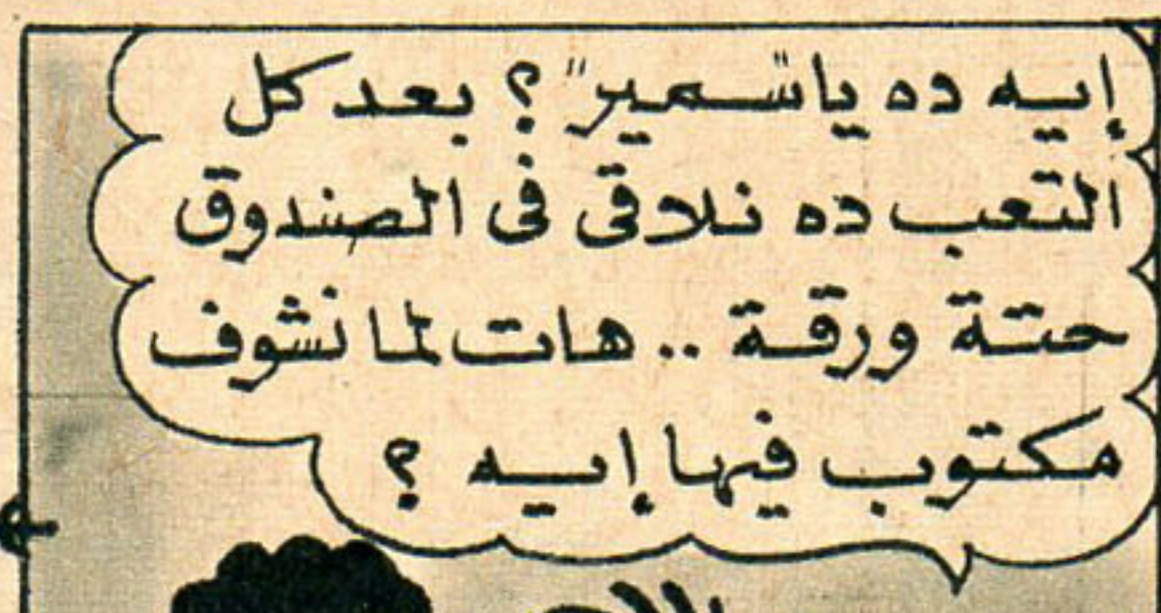 إيه ده يا "سمير" ؟ بعد كل
التعب ده نلاقى فى الصندوق
حتة ورقة .. هات لما نشوف
مكتوب فيها إيه ؟